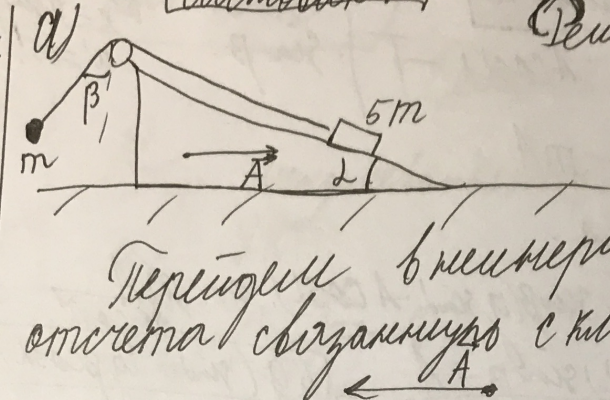 а)
β
5m
m
A
α
Перейдем в неинер
отсчета связанную с кл
A